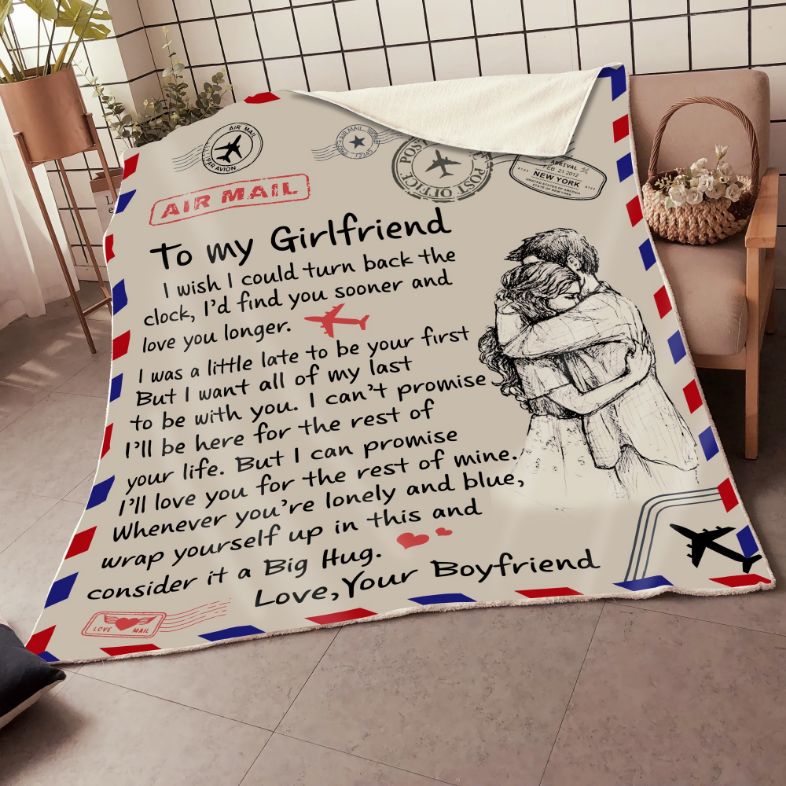 AIR MAIL
PAR AVION
AIR MAIL
POST OFFICE
ARRIVAL
FEB 21 2012
NEW YORK
AIR MAIL
To my Girlfriend
I wish I could turn back the
clock, I'd find you sooner and
love you longer.
I was a little late to be your first
But I want all of my last
to be with you. I can't promise
I'll be here for the rest of
your life. But I can promise
I'll love you for the rest of mine.
Whenever you're lonely and blue,
wrap yourself up in this and
consider it a Big Hug.
Love,Your Boyfriend
LOVE MAIL